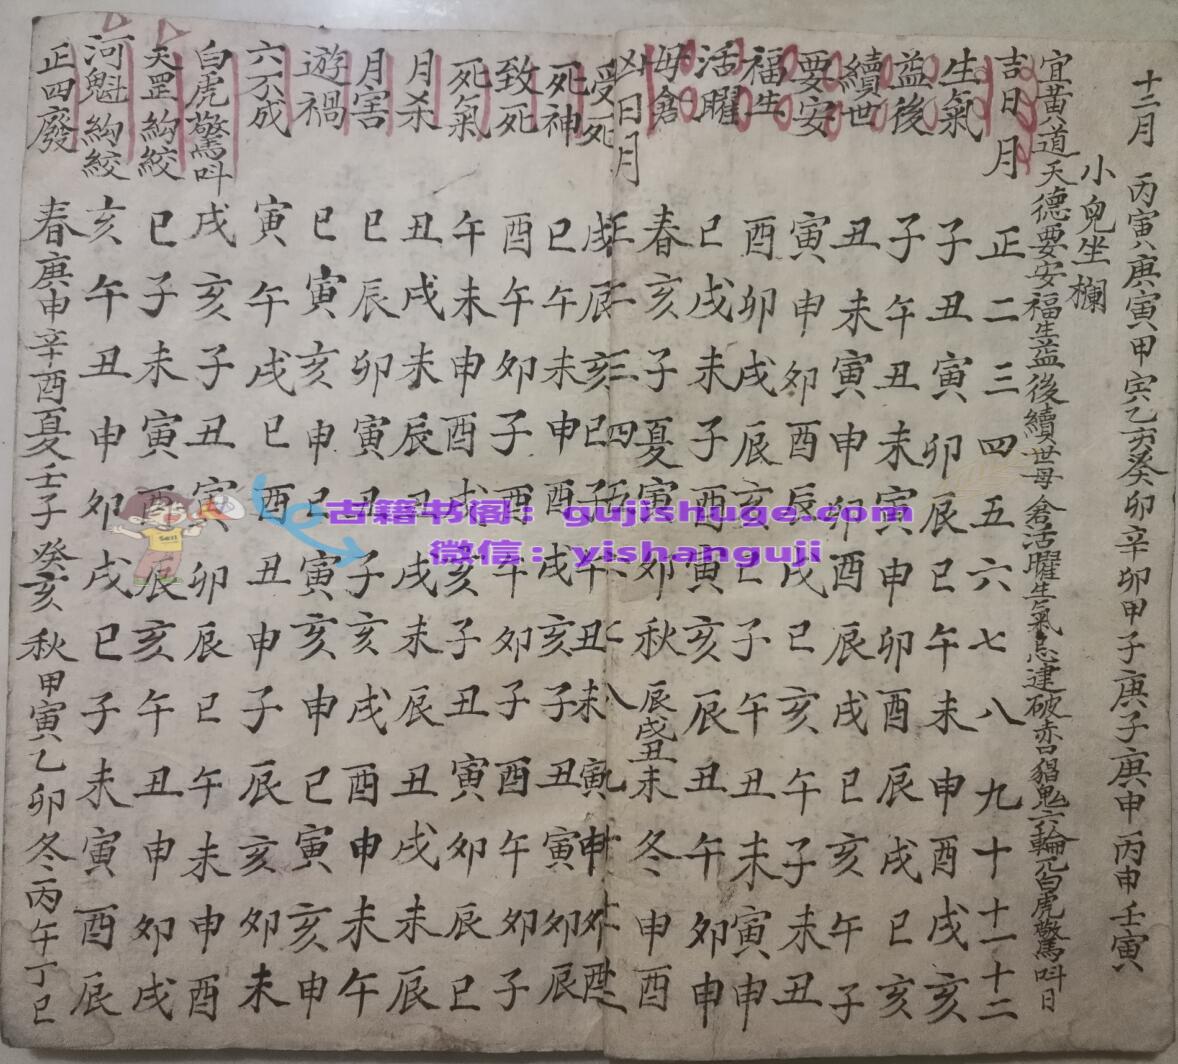 十二月 丙寅庚寅甲寅乙亥癸卯辛卯甲子庚子庚申丙申壬寅
小兒坐欄
宜黃道天德要安福生益後續世母倉活曜生氣忌建破赤口猖鬼六輪兀白虎驚叫日
吉日月 正二三四五六七八九十十一十二
生氣 子丑寅卯辰巳午未申酉戌亥
益後 子午丑未寅申卯酉辰戌巳亥
續世 丑未寅申卯酉辰戌巳亥午子
要安 寅申卯酉辰戌巳亥午子未丑
福生 酉卯戌辰亥巳子午丑未寅申
活曜 巳戌未子酉寅亥辰丑午卯申
母倉 春亥子夏寅卯秋辰戌丑未冬申酉
凶日月 正二三四五六七八九十十一十二
受死 戌辰亥巳子午丑未寅申卯酉
死神 巳午未申酉戌亥子丑寅卯辰
致死 酉午卯子酉午卯子酉午卯子
死氣 午未申酉戌亥子丑寅卯辰巳
月杀 丑戌未辰丑戌未辰丑戌未辰
月害 巳辰卯寅丑子亥戌酉申未午
遊禍 巳寅亥申巳寅亥申巳寅亥申
六不成 寅午戌巳酉丑申子辰亥卯未
白虎驚叫 戌亥子丑寅卯辰巳午未申酉
天罡絇絞 巳子未寅酉辰亥午丑申卯戌
河魁絇絞 亥午丑申卯戌巳子未寅酉辰
正四廢 春庚申辛酉夏壬子癸亥秋甲寅乙卯冬丙午丁巳
古籍书阁：gujishuge.com
微信：yishanguji